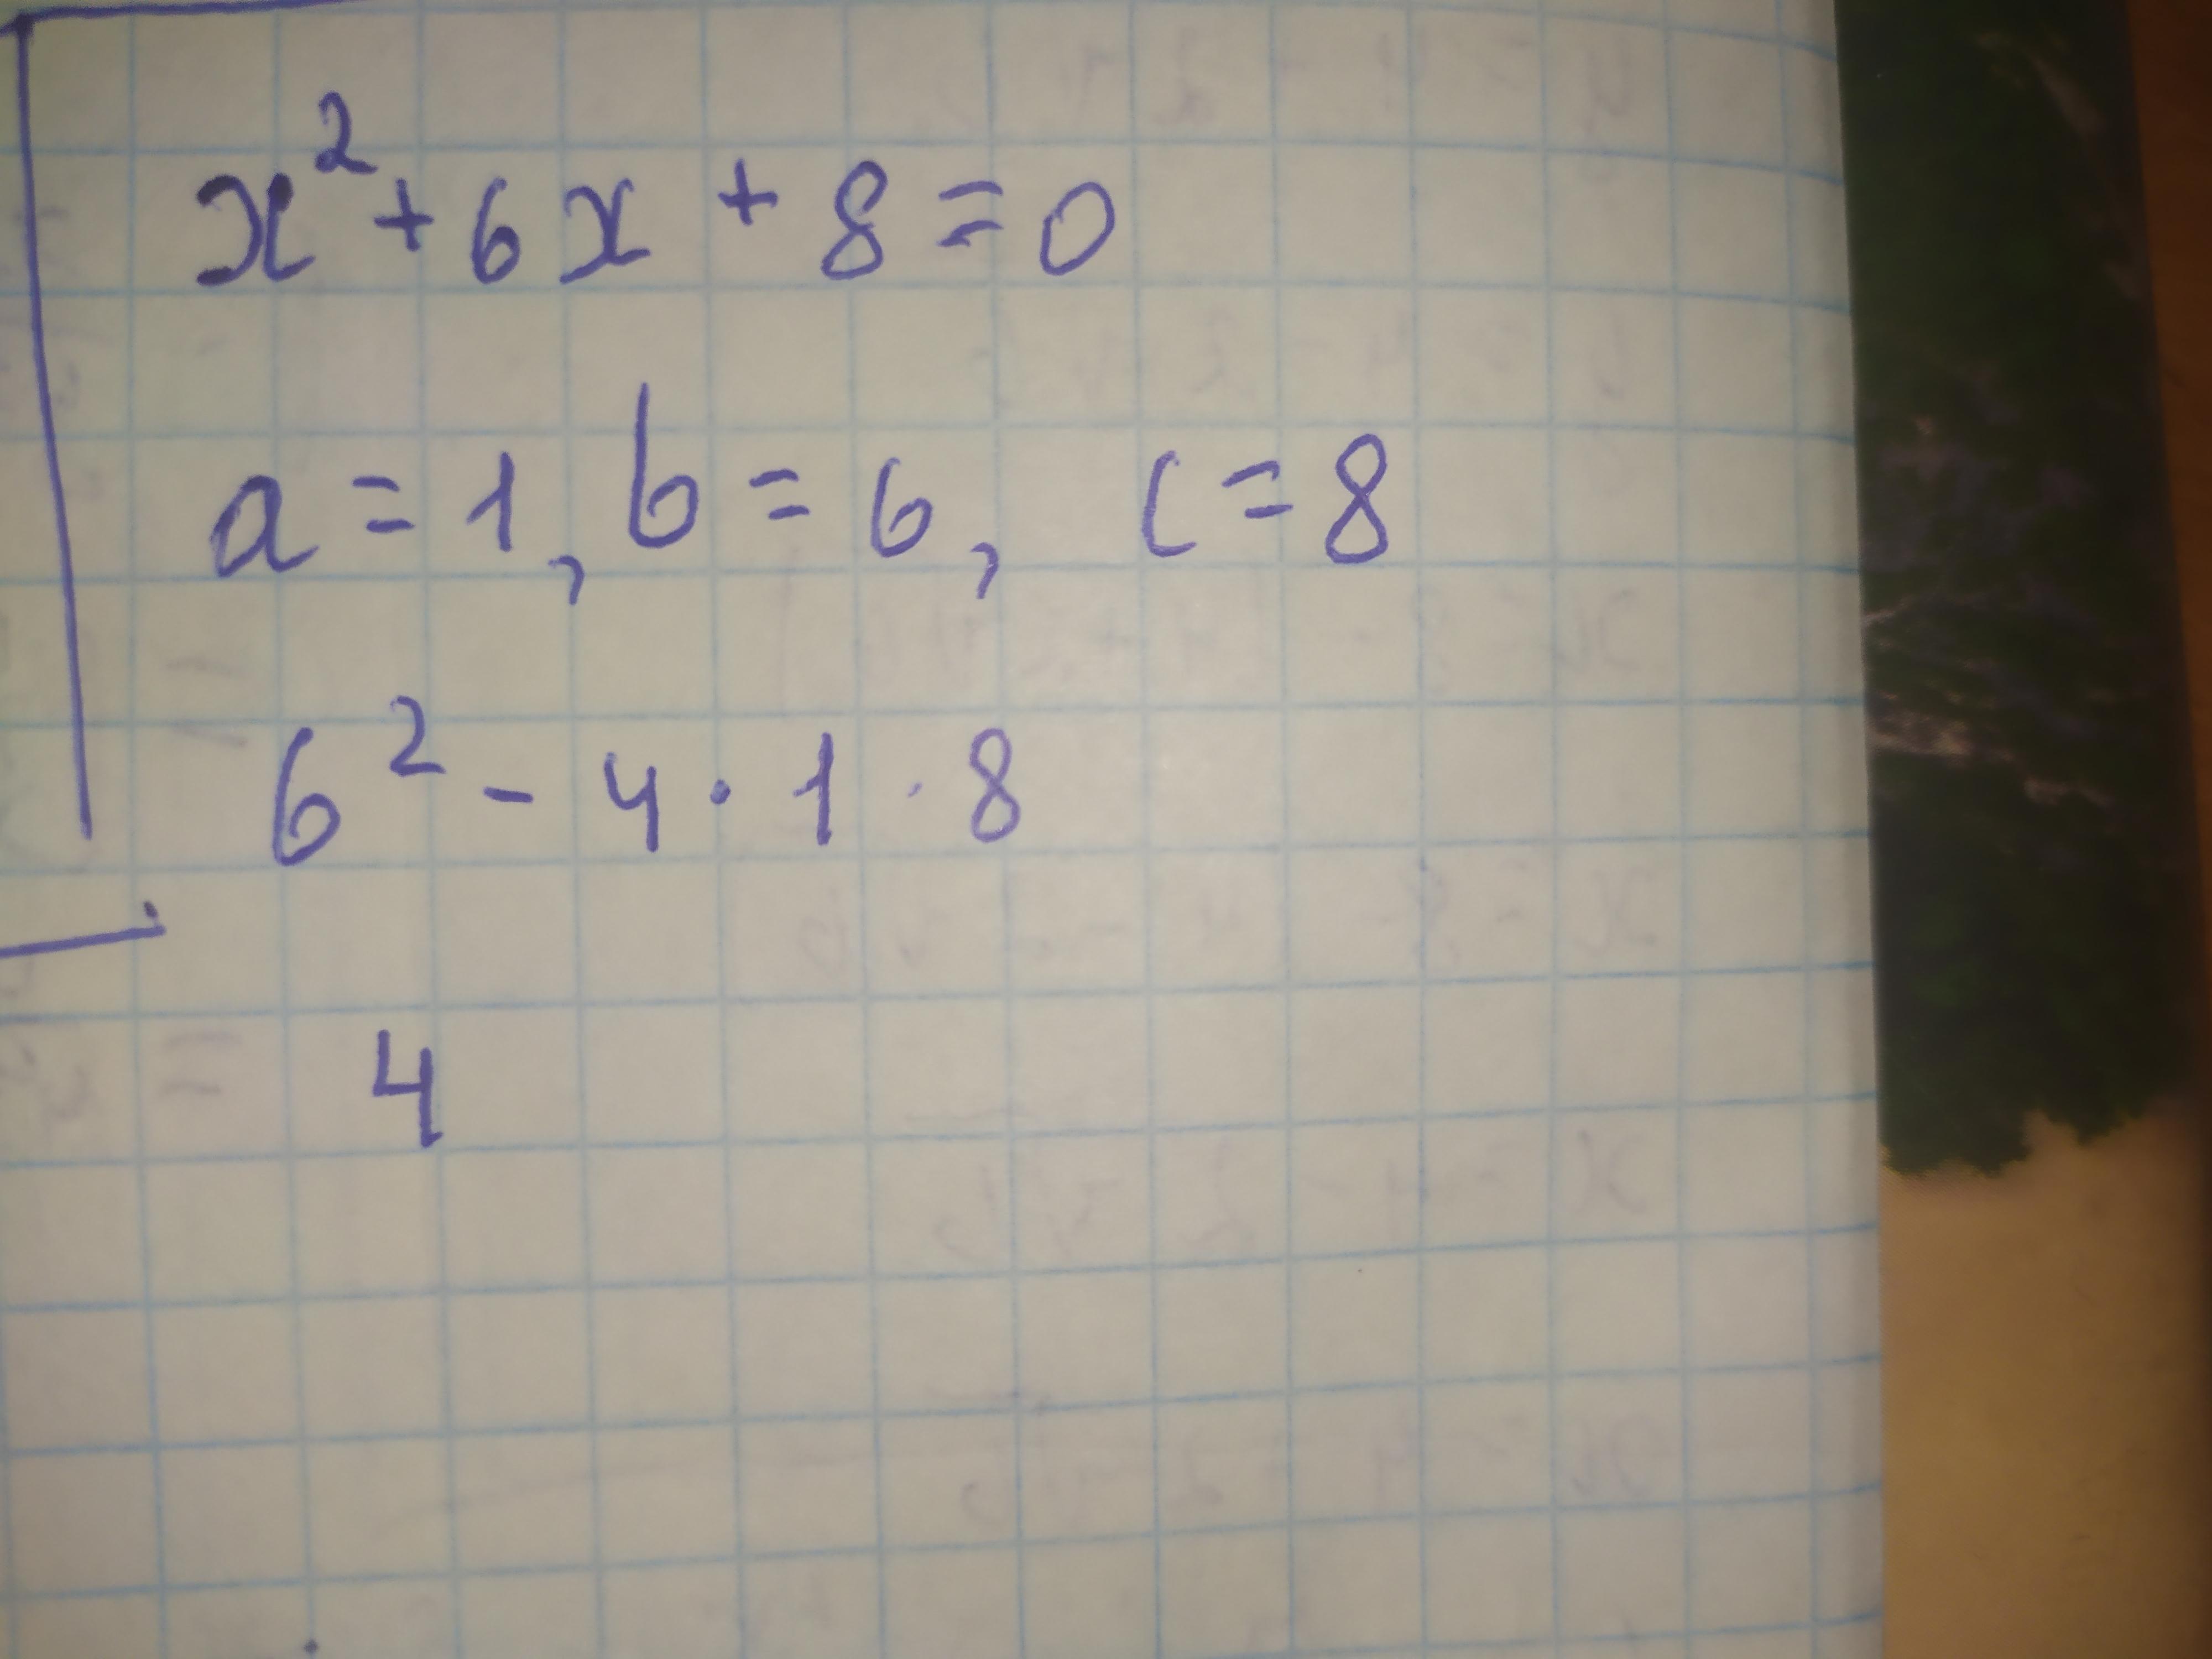 x² + 6x + 8 = 0
a = 1, b = 6, c = 8
6² - 4 · 1 · 8
4